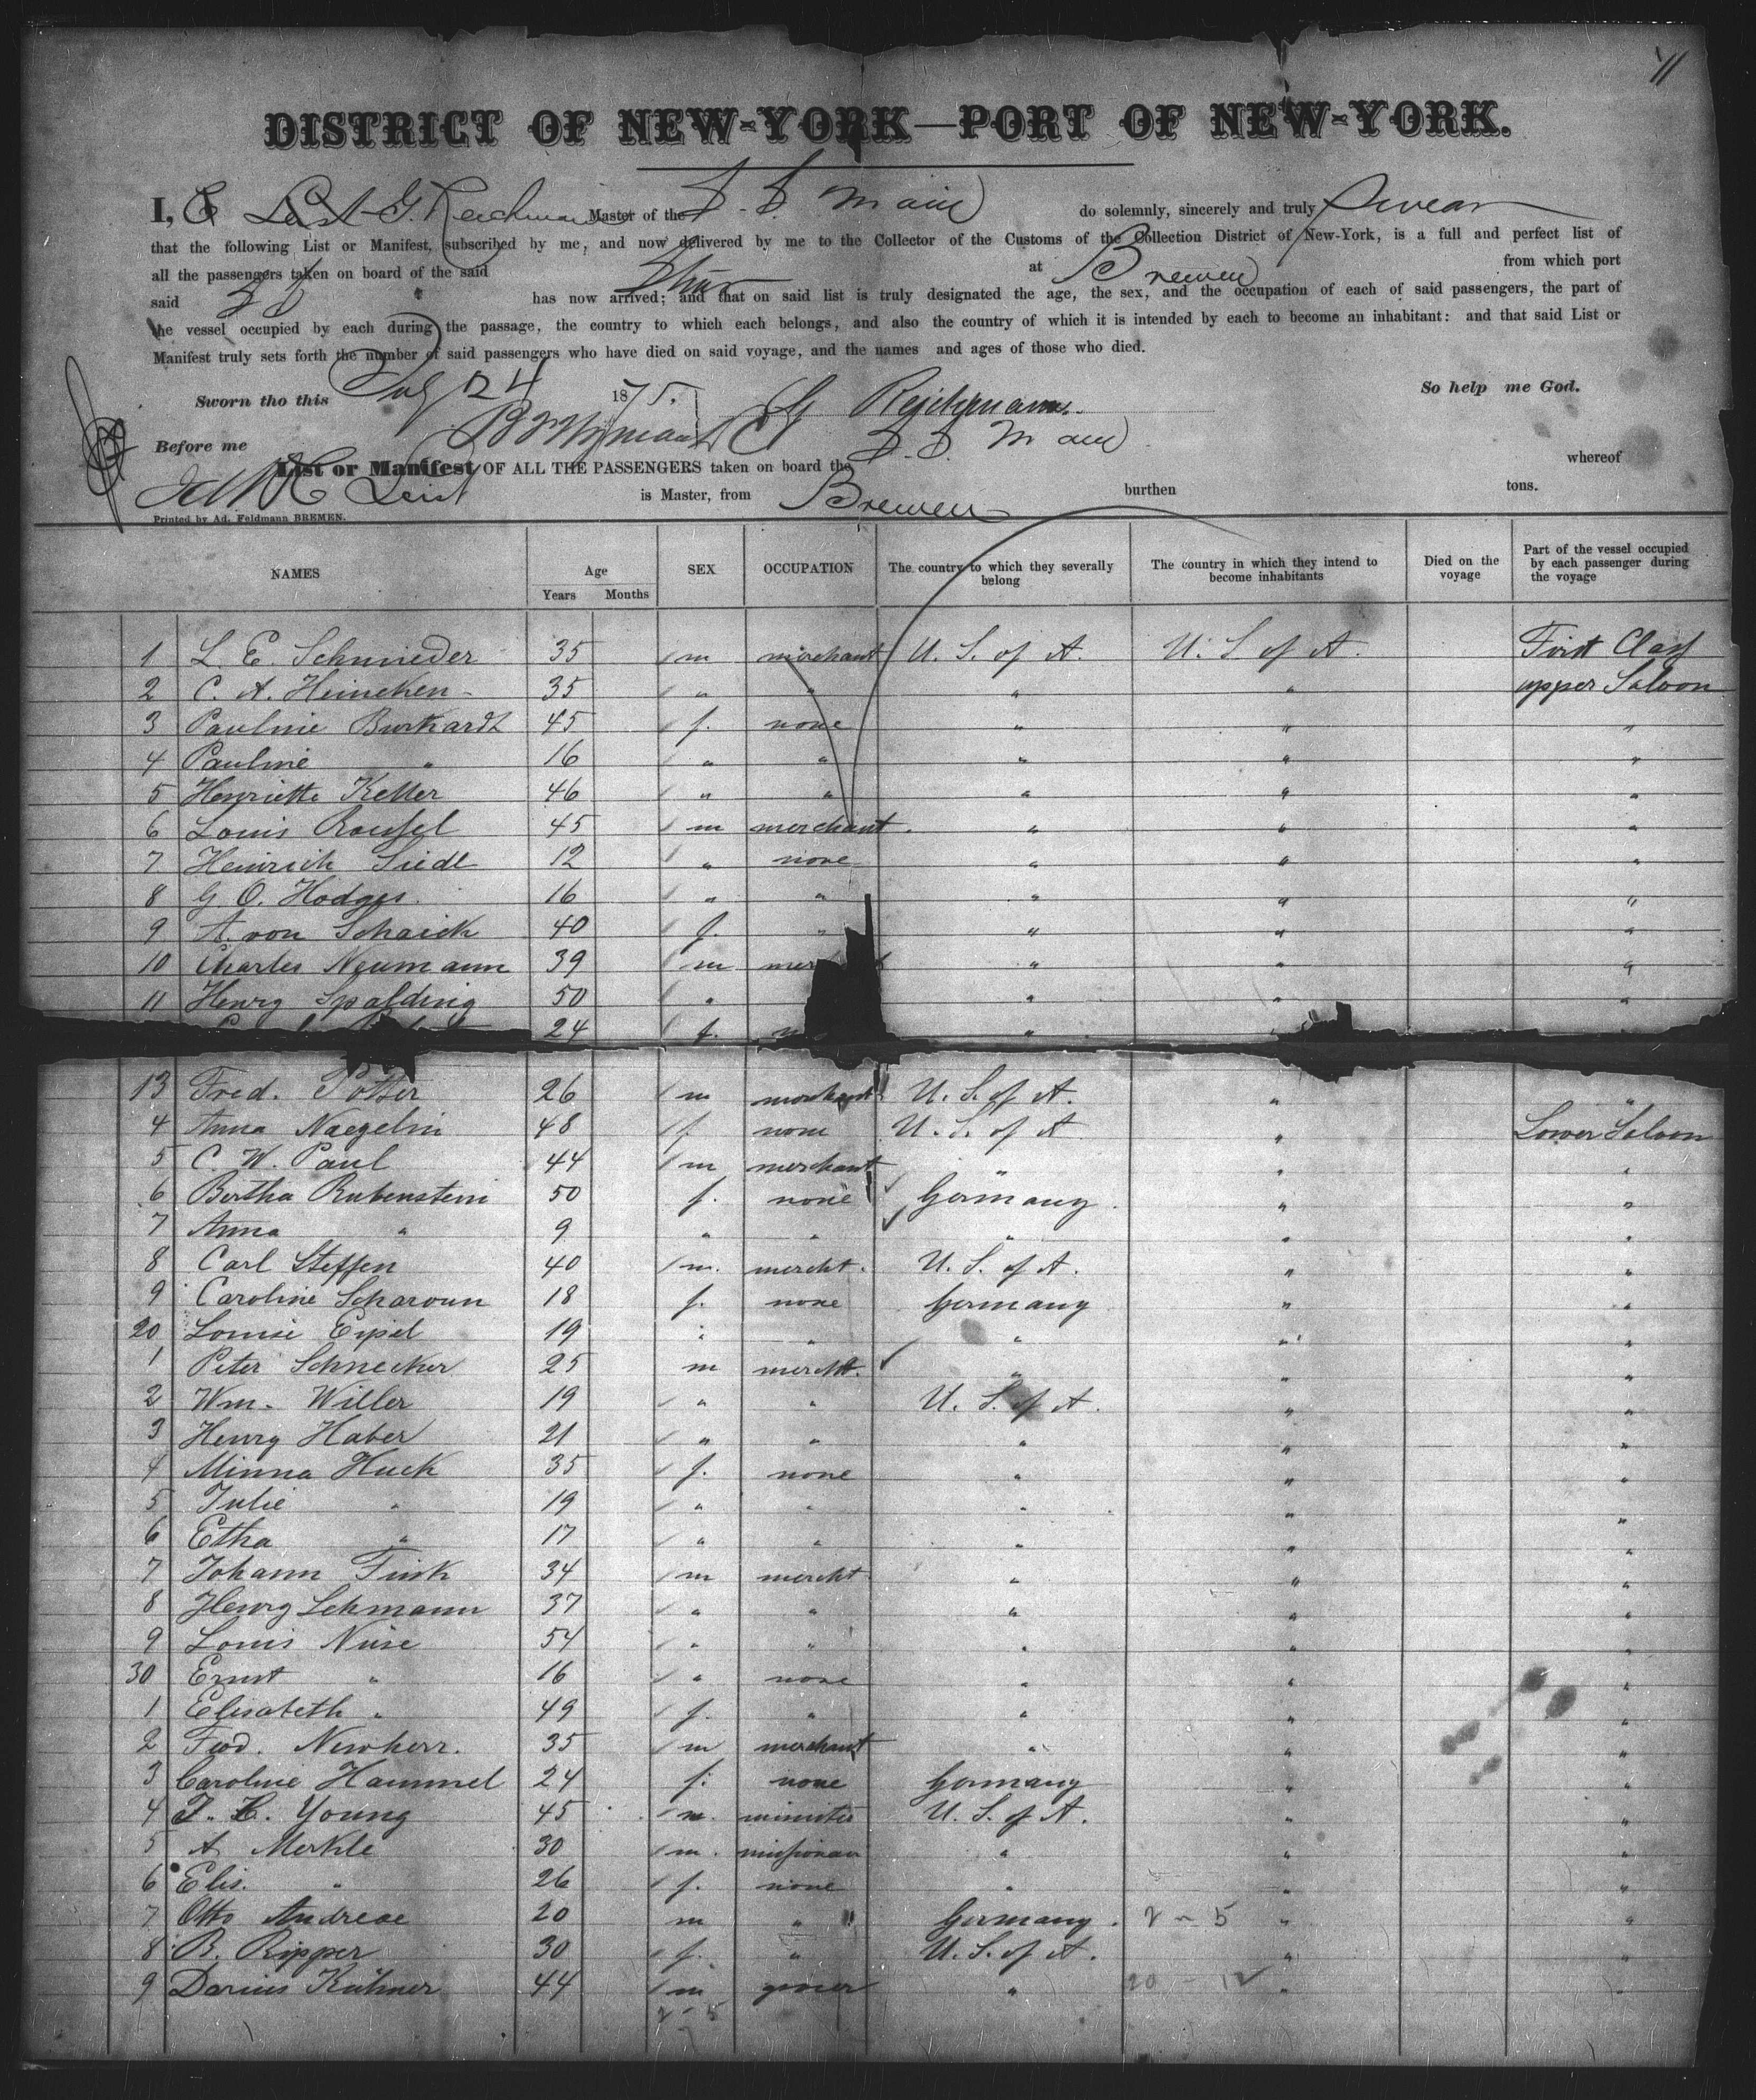 11
DISTRICT OF NEW-YORK—PORT OF NEW-YORK.
I, C Leist G. Reichmann Master of the S. S. Main do solemnly, sincerely and truly swear
that the following List or Manifest, subscribed by me, and now delivered by me to the Collector of the Customs of the Collection District of New-York, is a full and perfect list of
all the passengers taken on board of the said Ship at Bremen from which port
said S S has now arrived; and that on said list is truly designated the age, the sex, and the occupation of each of said passengers, the part of
the vessel occupied by each during the passage, the country to which each belongs, and also the country of which it is intended by each to become an inhabitant: and that said List or
Manifest truly sets forth the number of said passengers who have died on said voyage, and the names and ages of those who died.
Sworn tho this 24 1875. So help me God.
G Reichmann
Before me
List or Manifest OF ALL THE PASSENGERS taken on board the S. S. Main whereof
Leist is Master, from Bremen burthen tons.
Printed by Ad. Feldmann BREMEN.
NAMES Age Years Months SEX OCCUPATION The country to which they severally belong The country in which they intend to become inhabitants Died on the voyage Part of the vessel occupied by each passenger during the voyage
1 L. E. Schmieder 35 m merchant U. S. of A. U. S. of A. First Class
2 C. A. Heineken 35 " " " " upper Saloon
3 Pauline Burkardt 45 f. none " " "
4 Pauline " 16 " " " " "
5 Henriette Keller 46 " " " " "
6 Louis Roessel 45 m merchant. " " "
7 Heinrich Siedl 12 " none " " "
8 G O. Hodges. 16 " " " " "
9 A. von Schaick 40 f. " " " "
10 Charles Neumann 39 m " " "
11 Henry Spalding 50 " " " "
24 f. "
13 Fred. Potter 26 m merchant U. S. of A. " "
4 Anna Naegelin 48 f. none U. S. of A " Lower Saloon
5 C. W. Paul 44 m merchant " " "
6 Bertha Rubenstein 50 f. none Germany " "
7 Anna " 9 " " " " "
8 Carl Steffen 40 m. mercht. U. S. of A. " "
9 Caroline Scharoun 18 f. none Germany " "
20 Louise Eipel 19 " " " " "
1 Peter Schnecker 25 m mercht. " " "
2 Wm. Willer 19 " " U. S. of A. " "
3 Henry Haber 21 " " " " "
4 Minna Huck 35 f. none " " "
5 Julie " 19 " " " " "
6 Etha " 17 " " " " "
7 Johann Fink 34 m mercht. " " "
8 Henry Lehmann 37 " " " " "
9 Louis Nüse 54 " " " " "
30 Ernst " 16 " none " " "
1 Elisabeth " 49 f. " " " "
2 Ferd. Newherr. 35 m merchant " " "
3 Caroline Hammel 24 f. none Germany " "
4 J. H. Young 45 m. minister U. S. of A. " "
5 A Merkle 30 m. missionar " " "
6 Elis. " 26 f. none " " "
7 Otto Andreae 20 m " Germany. 2 - 5 " "
8 B. Ripper 30 f. " U. S. of A. " "
9 Darius Kühner 44 m grocer " 20 - 12 " "
2 - 5